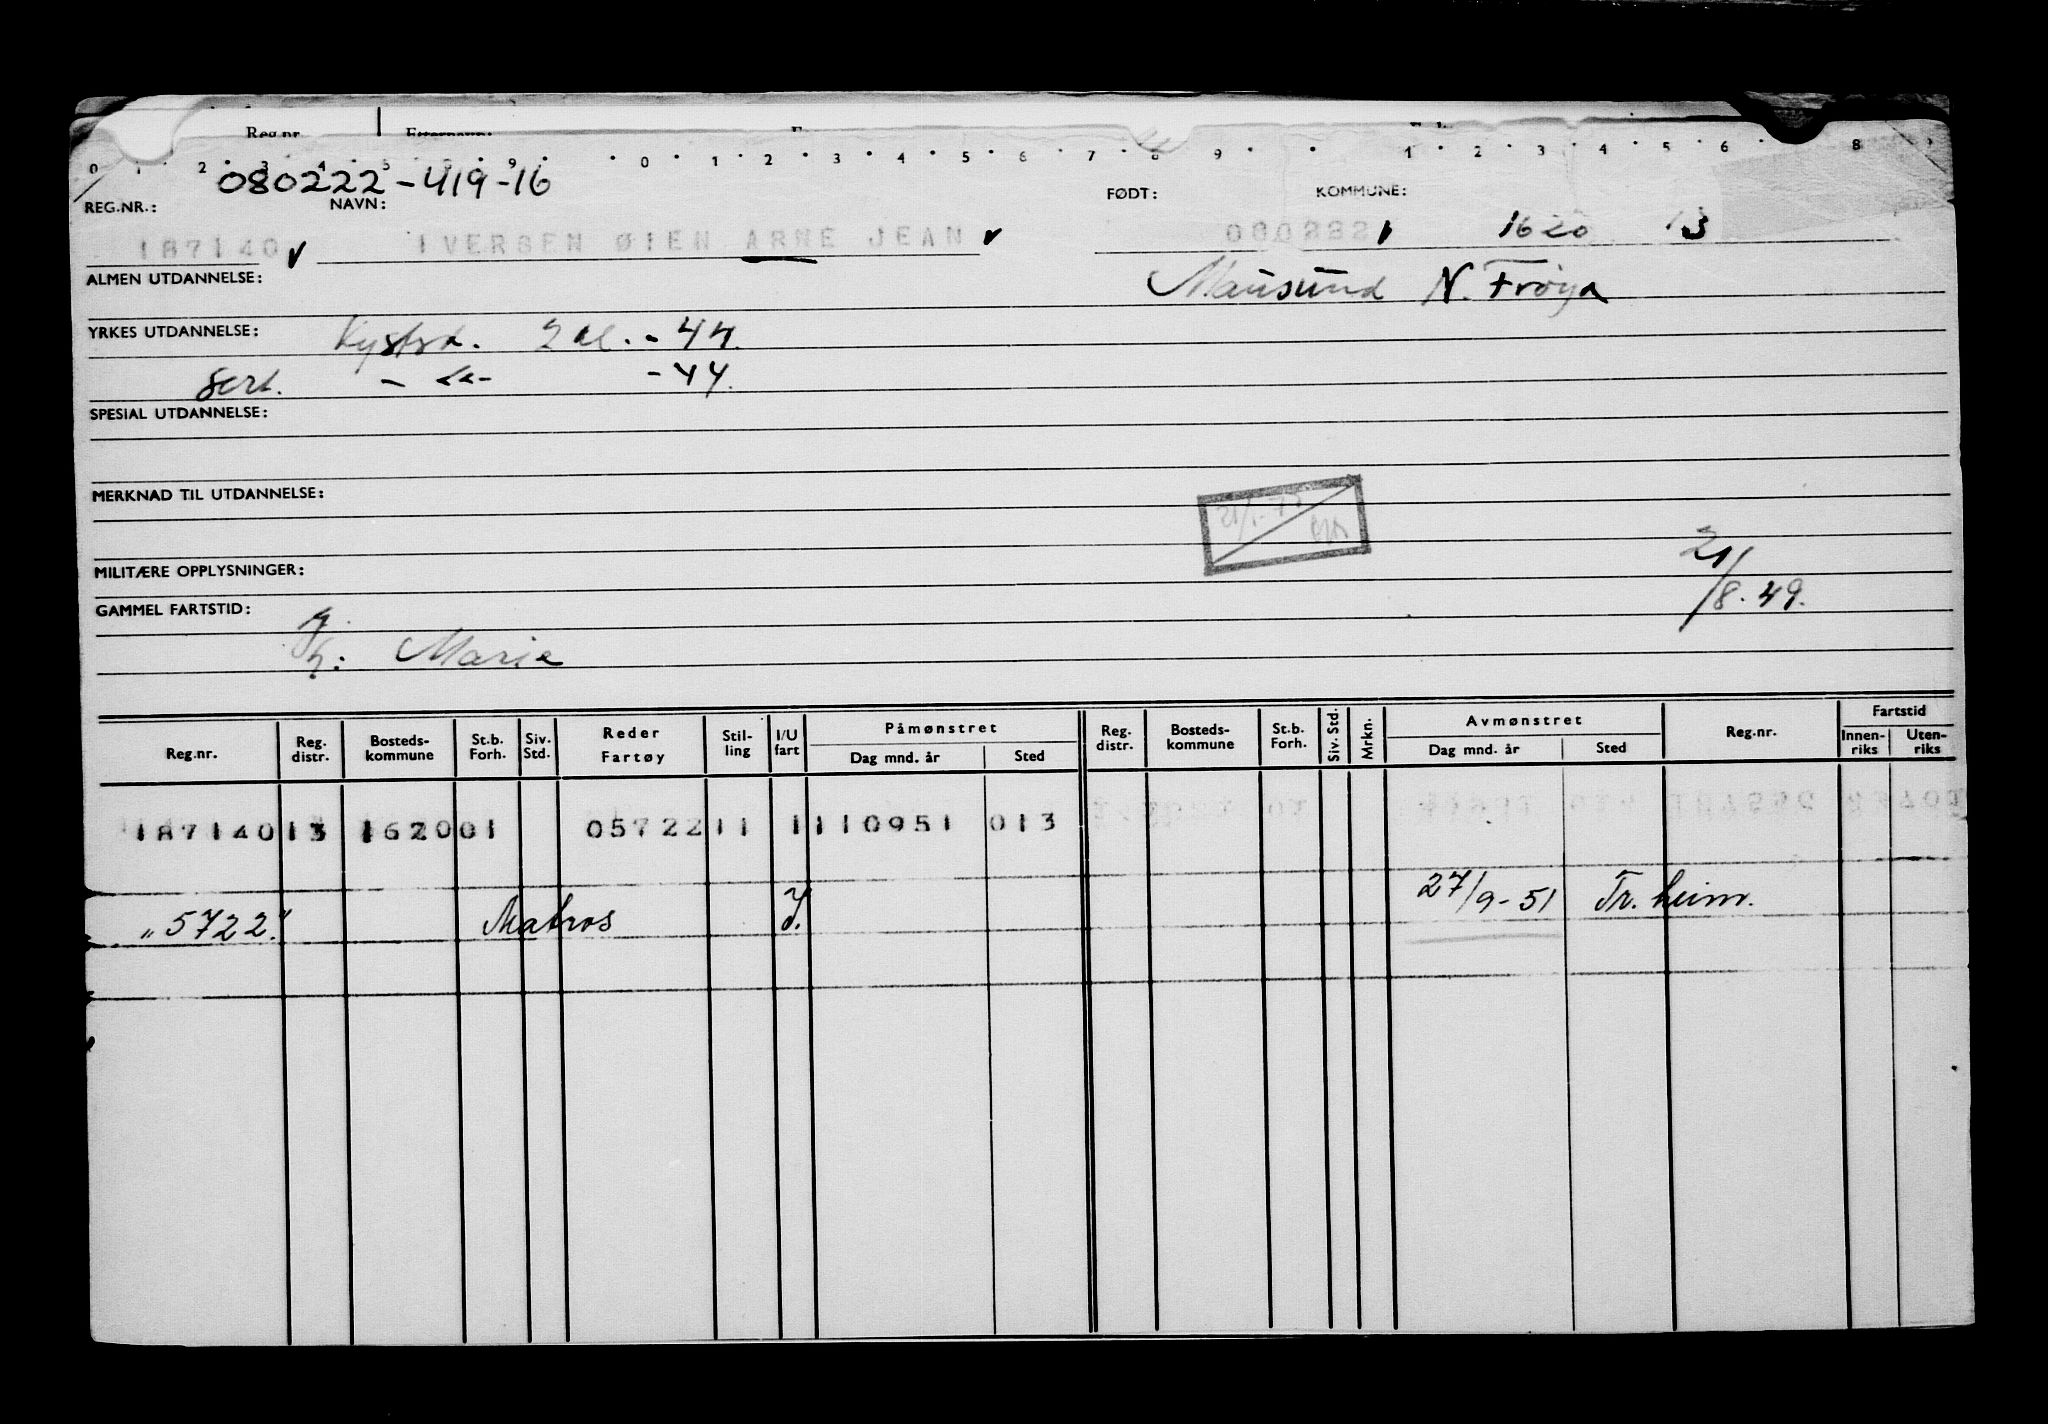 Reg.nr.
0 1 2 3 4 5 8 9 0 1 2 3 4 5 6 7 8 9 1 2 3 4 5 6 8
080222-419-16
REG.NR.: NAVN: FØDT: KOMMUNE:
187140 IVERSEN ØIEN ARNE JEAN 1620 13
ALMEN UTDANNELSE: Mausund N. Frøya
YRKES UTDANNELSE: 2 kl. - 44.
Sert. - «- - 44.
SPESIAL UTDANNELSE:
MERKNAD TIL UTDANNELSE:
MILITÆRE OPPLYSNINGER: 21/8.49.
GAMMEL FARTSTID:
Marie
Reg.nr. Reg. distr. Bosteds-kommune St.b. Forh. Siv. Std. Reder Fartøy Stil-ling I/U fart Påmønstret Dag mnd. år Sted Reg. distr. Bosteds-kommune St.b. Forh. Siv. Std. Mrkn. Avmønstret Dag mnd. år Sted Reg.nr. Fartstid Innen-riks Uten-riks
187140 13 1620 01 05722 11 1 110951 013
"5722" Matros I. 27/9-51 Tr.heim.